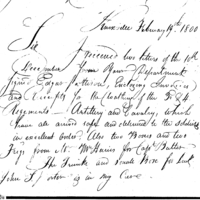 Knoxville February 19th 1800
Sir
I received two letters of the 10th
December from your Department
signed Edgar Patterson, Enclosing Invoices
and Receipts for the cloathing of the 3d & 4
Regiments Artillery and Cavalry which
have all arrived safe and delivered to the soldiers
in excellent order. Also two Boxes and two
from Mr for Capt Butler
The Trunk and Box for Lieut
John is in my Care.